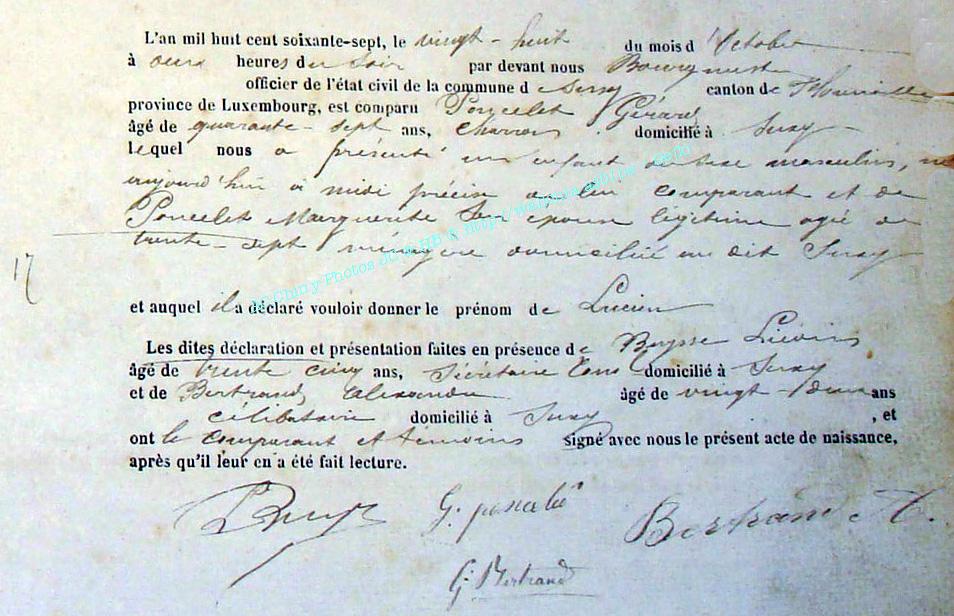 L'an mil huit cent soixante-sept, le vingt-huit du mois d'Octobre
à deux heures du soir par devant nous Bourgmestre
officier de l'état civil de la commune de Suxy canton de
province de Luxembourg, est comparu Poncelet Gérard
âgé de quarante-sept ans, charron domicilié à Suxy
lequel nous a présenté un enfant de sexe masculin, né
aujourd'hui à midi précise de lui comparant et de
Poncelet Marguerite son épouse légitime agée de
trente-sept ménagère domiciliée au dit Suxy
17
et auquel il a déclaré vouloir donner le prénom de Lucien
Les dites déclaration et présentation faites en présence de Buysse Liévin
âgé de trente cinq ans, Sécrétaire Coml domicilié à Suxy
et de Bertrand Alexandre âgé de vingt-deux ans
célibataire domicilié à Suxy , et
ont le comparant et témoins signé avec nous le présent acte de naissance,
après qu'il leur en a été fait lecture.
G. poncelet Bertrand A.
G. Bertrand